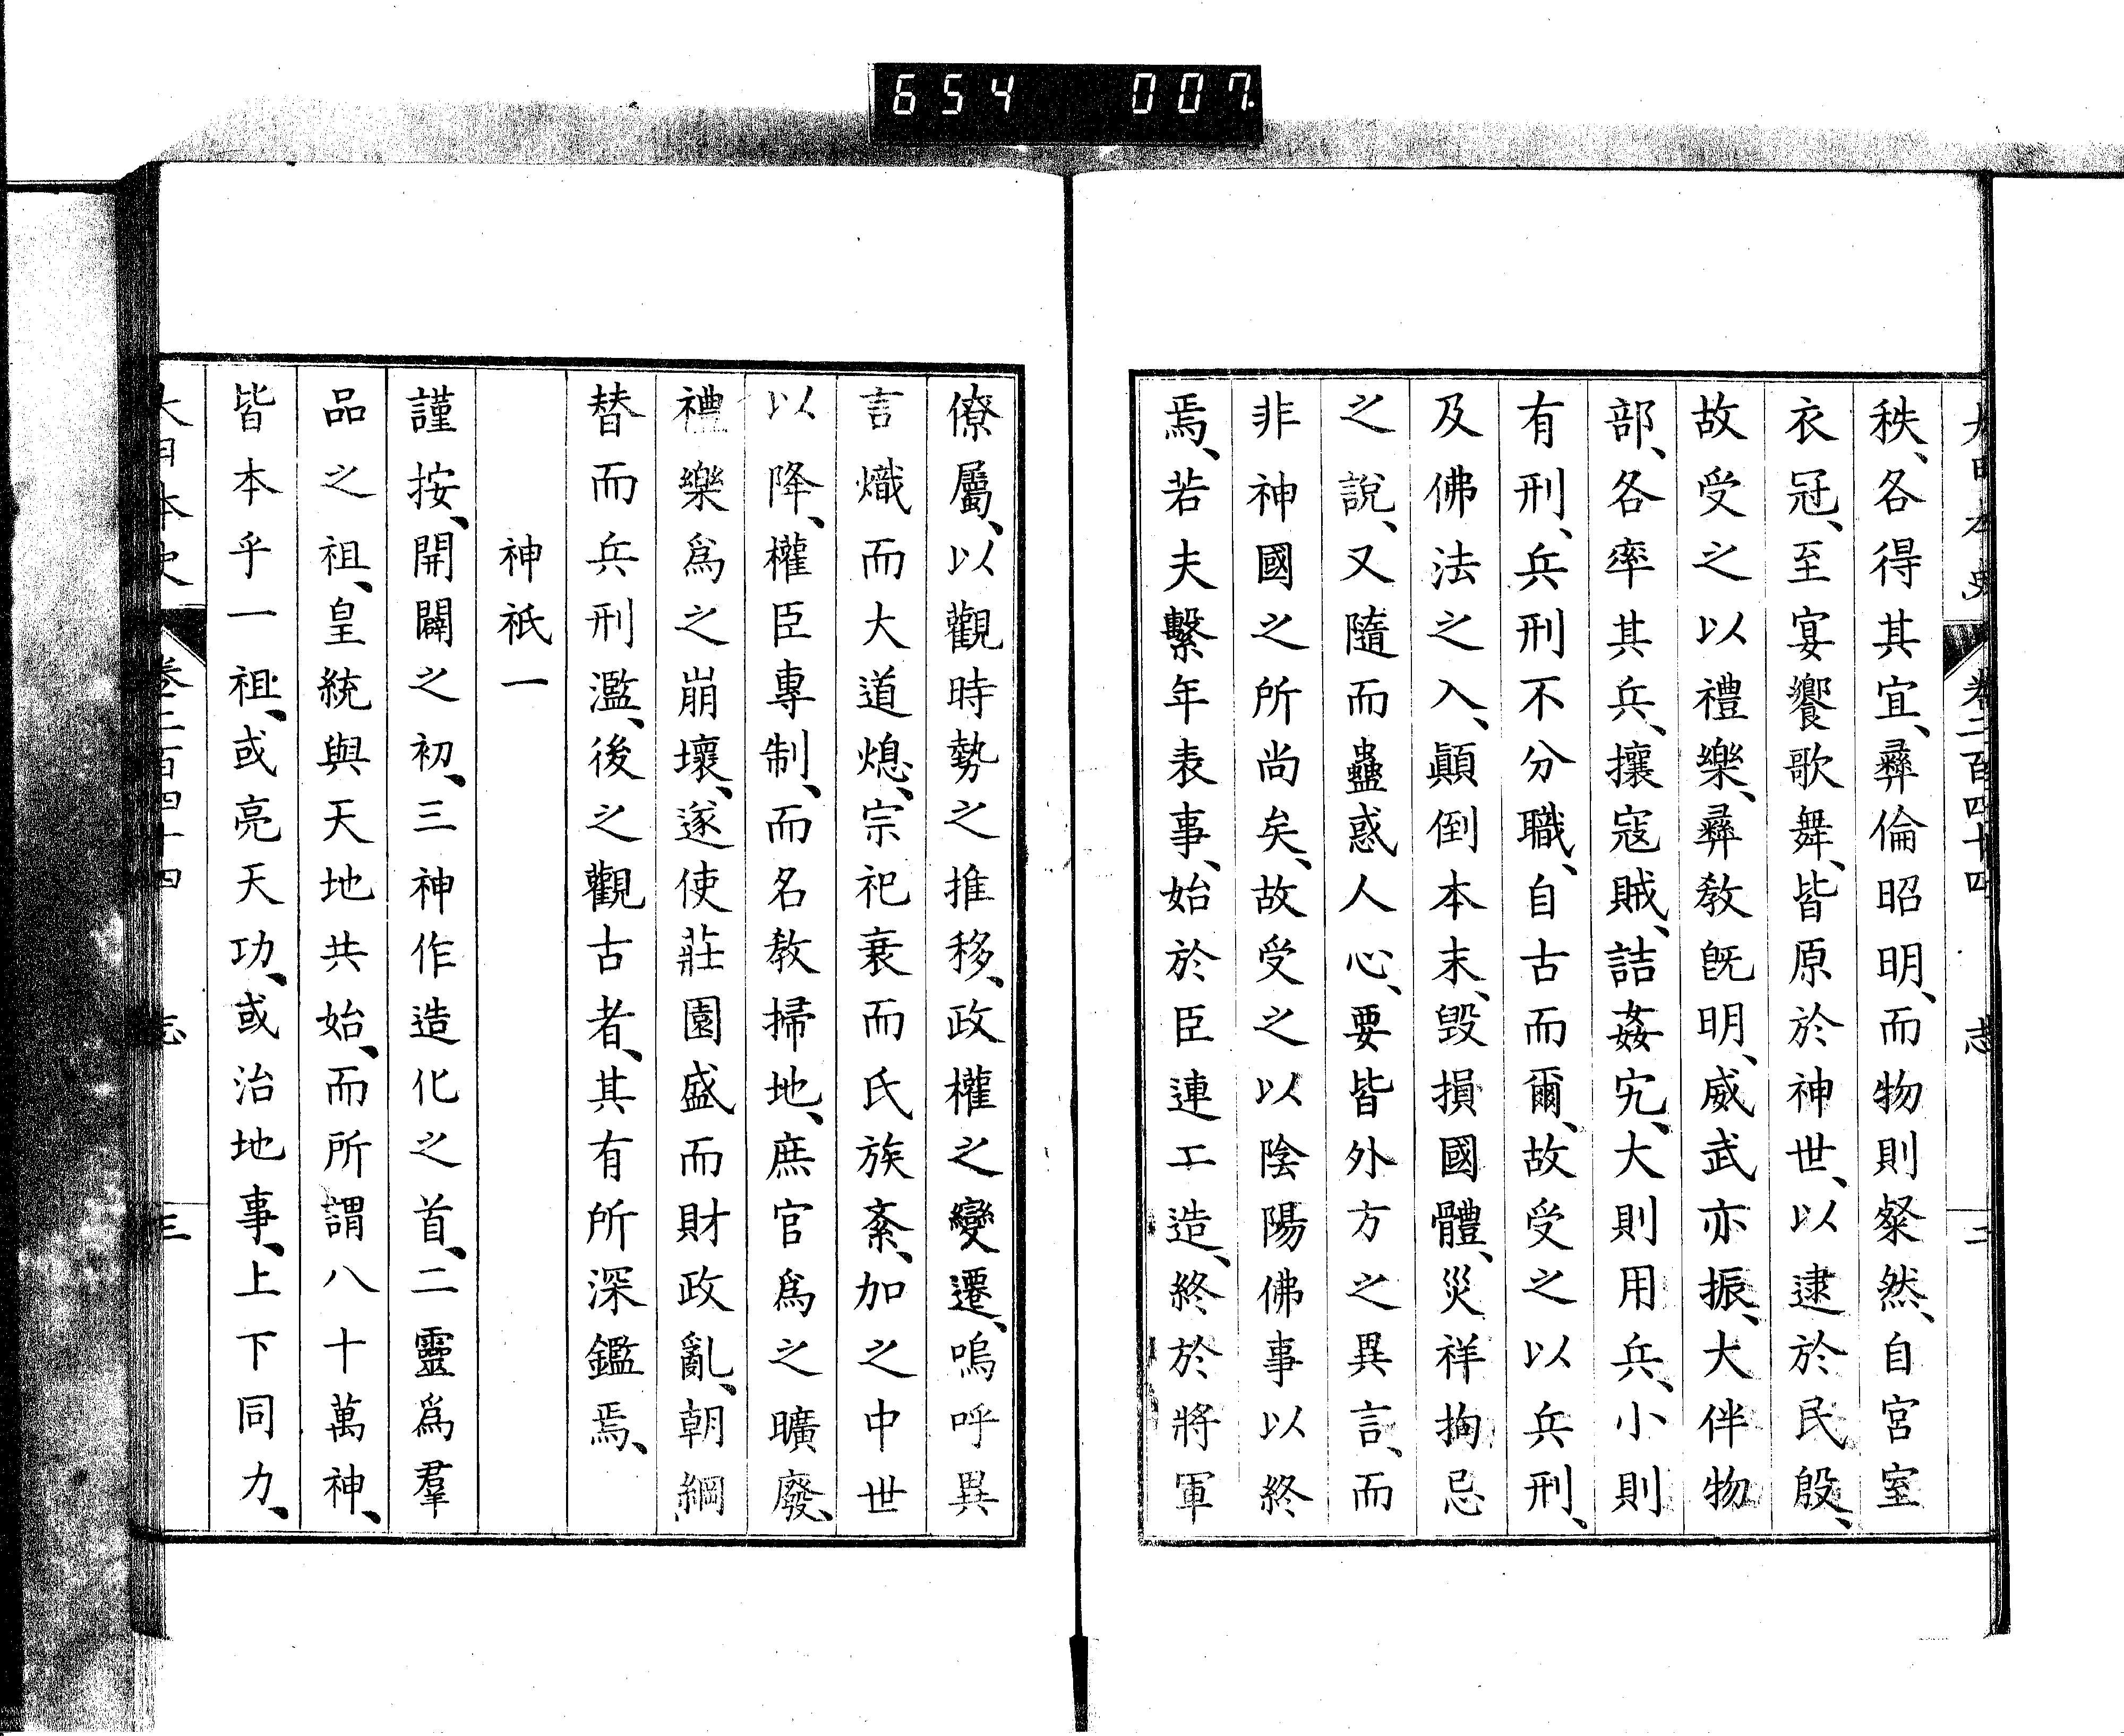 654 007.
大日本史 卷二百四十四 志 二
秩、各得其宜、彝倫昭明、而物則粲然、自宮室
衣冠、至宴饗歌舞、皆原於神世、以逮於民殷、
故受之以禮樂、彝教既明、威武亦振、大伴物
部、各率其兵、攘寇賊、詰姦宄、大則用兵、小則
有刑、兵刑不分職、自古而爾、故受之以兵刑、
及佛法之入、顚倒本末、毀損國體、災祥拘忌
之說、又隨而蠱惑人心、要皆外方之異言、而
非神國之所尚矣、故受之以陰陽佛事以終
焉、若夫繫年表事、始於臣連工造、終於將軍
僚屬、以觀時勢之推移、政權之變遷、嗚呼異
言熾而大道熄、宗祀衰而氏族紊、加之中世
以降、權臣專制、而名教掃地、庶官爲之曠廢、
禮樂爲之崩壞、遂使莊園盛而財政亂、朝綱
替而兵刑濫、後之觀古者、其有所深鑑焉、
神祇一
謹按、開闢之初、三神作造化之首、二靈爲羣
品之祖、皇統與天地共始、而所謂八十萬神、
皆本乎一祖、或亮天功、或治地事、上下同力、
大日本史 卷二百四十四 志 三